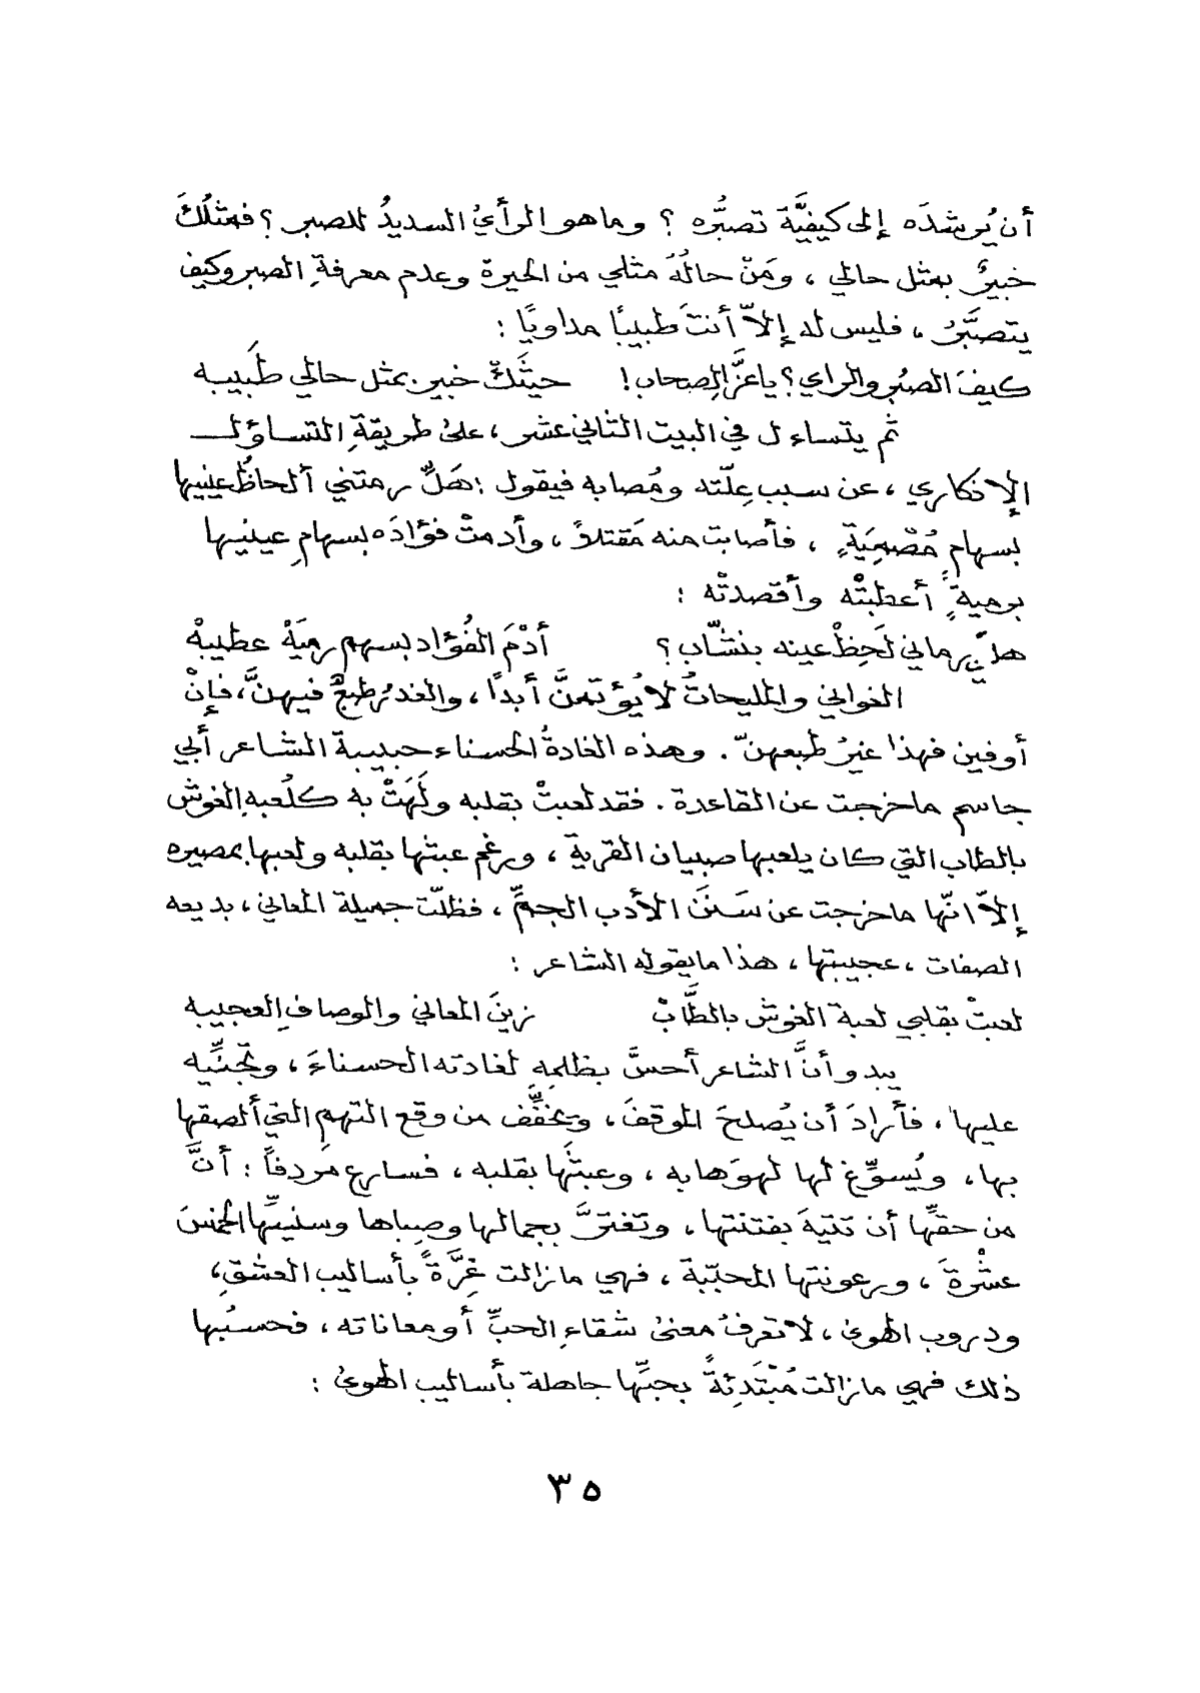 أن يُرشدَه إلى كيفيَّةَ تصبُّره ؟ وما هو الرأيُ السديدُ للصبر ؟ فمثلُكَ
خبيرٌ بمثل حالي ، ومَنْ حالُهُ مثلي من الحيرة وعدم معرفةِ الصبر وكيف
يتصبَّرُ ، فليس له إلاّ أنتَ طبيبًا مداويًا :
كيفَ الصبُر والراي ؟ يا عزَّ الِصحاب ! حيثَكْ خبير بمثل حالي طَبيبه
ثم يتساءل في البيت الثاني عشر ، على طريقةِ التساؤل
الإنكاري ، عن سبب عِلّته ومُصابه فيقول : هَلْ رمتني ألحاظُ عينيها
بسهامٍ مُصْمِيَةٍ ، فأصابت منه مَقتلاً ، وأدمتْ فؤادَه بسهامِ عينيها
برميةٍ أعطبتْه وأقصدتْه :
هلْ رماني لَحِظْ عينه بنشّاب ؟ أدْمَ الفُؤاد بسهم رميَةْ عطيبهْ
الغواني والمليحاتُ لا يُؤتمنَّ أبدًا ، والغدرُ طبعٌ فيهنَّ ، فإنْ
أوفين فهذا غيرُ طبعهنّ . وهذه الغادةُ الحسناء حبيبة الشاعر أبي
جاسم ما خرجت عن القاعدة . فقد لعبتْ بقلبه ولَهَتْ به كلُعبهِ الغوش
بالطاب التي كان يلعبها صبيان القرية ، ورغم عبثها بقلبه ولعبها بمصيره
إلاّ انّها ما خرجت عن سَنَنَ الأدب الجمِّ ، فظلّت جميلة المعاني ، بديعه
الصفات ، عجيبتها ، هذا ما يقوله الشاعر :
لعبتْ بقلبي لعبة الغوش بالطَّابْ زينَ المعاني والوصافِ العجيبه
يبدو أنَّ الشاعر أحسَّ بظلمِهِ لغادته الحسناءَ ، وتجنِّيه
عليها ، فأرادَ أن يُصلحَ الموقفَ ، ويخفِّف من وقع التهم التي ألصقها
بها ، ويُسوِّغ لها لهوَها به ، وعبثَها بقلبه ، فسارع مردفاً : أنَّ
من حقِّها أن تتيهَ بفتنتها ، وتغترَّ بجمالها وصِباها وسنيِّها الخمسَ
عشْرةَ ، ورعونتها المحبّبة ، فهي مازالت غِرَّةً بأساليب العشقِ ،
ودروب الهوى ، لا تعرفُ معنى شقاءِ الحبِّ أو معاناته ، فحسبُها
ذلك فهي مازالت مُبْتَدِئةً بحبِّها جاهلة بأساليب الهوى :
٣٥